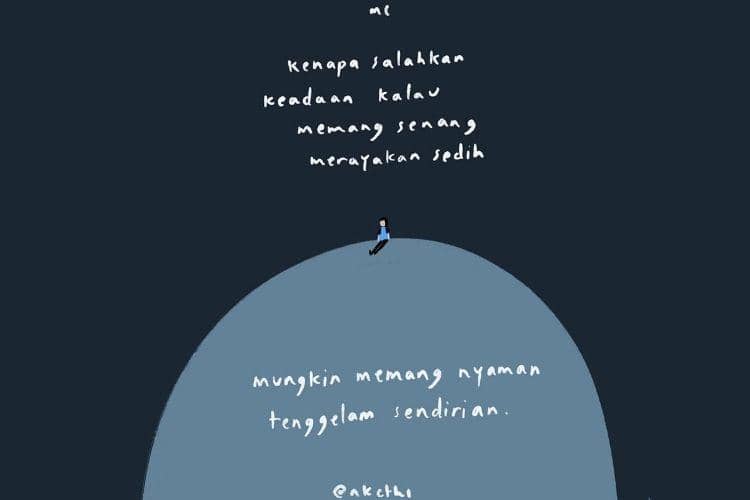 me
kenapa salahkan
keadaan kalau
memang senang
merayakan sedih
mungkin memang nyaman
tenggelam sendirian.